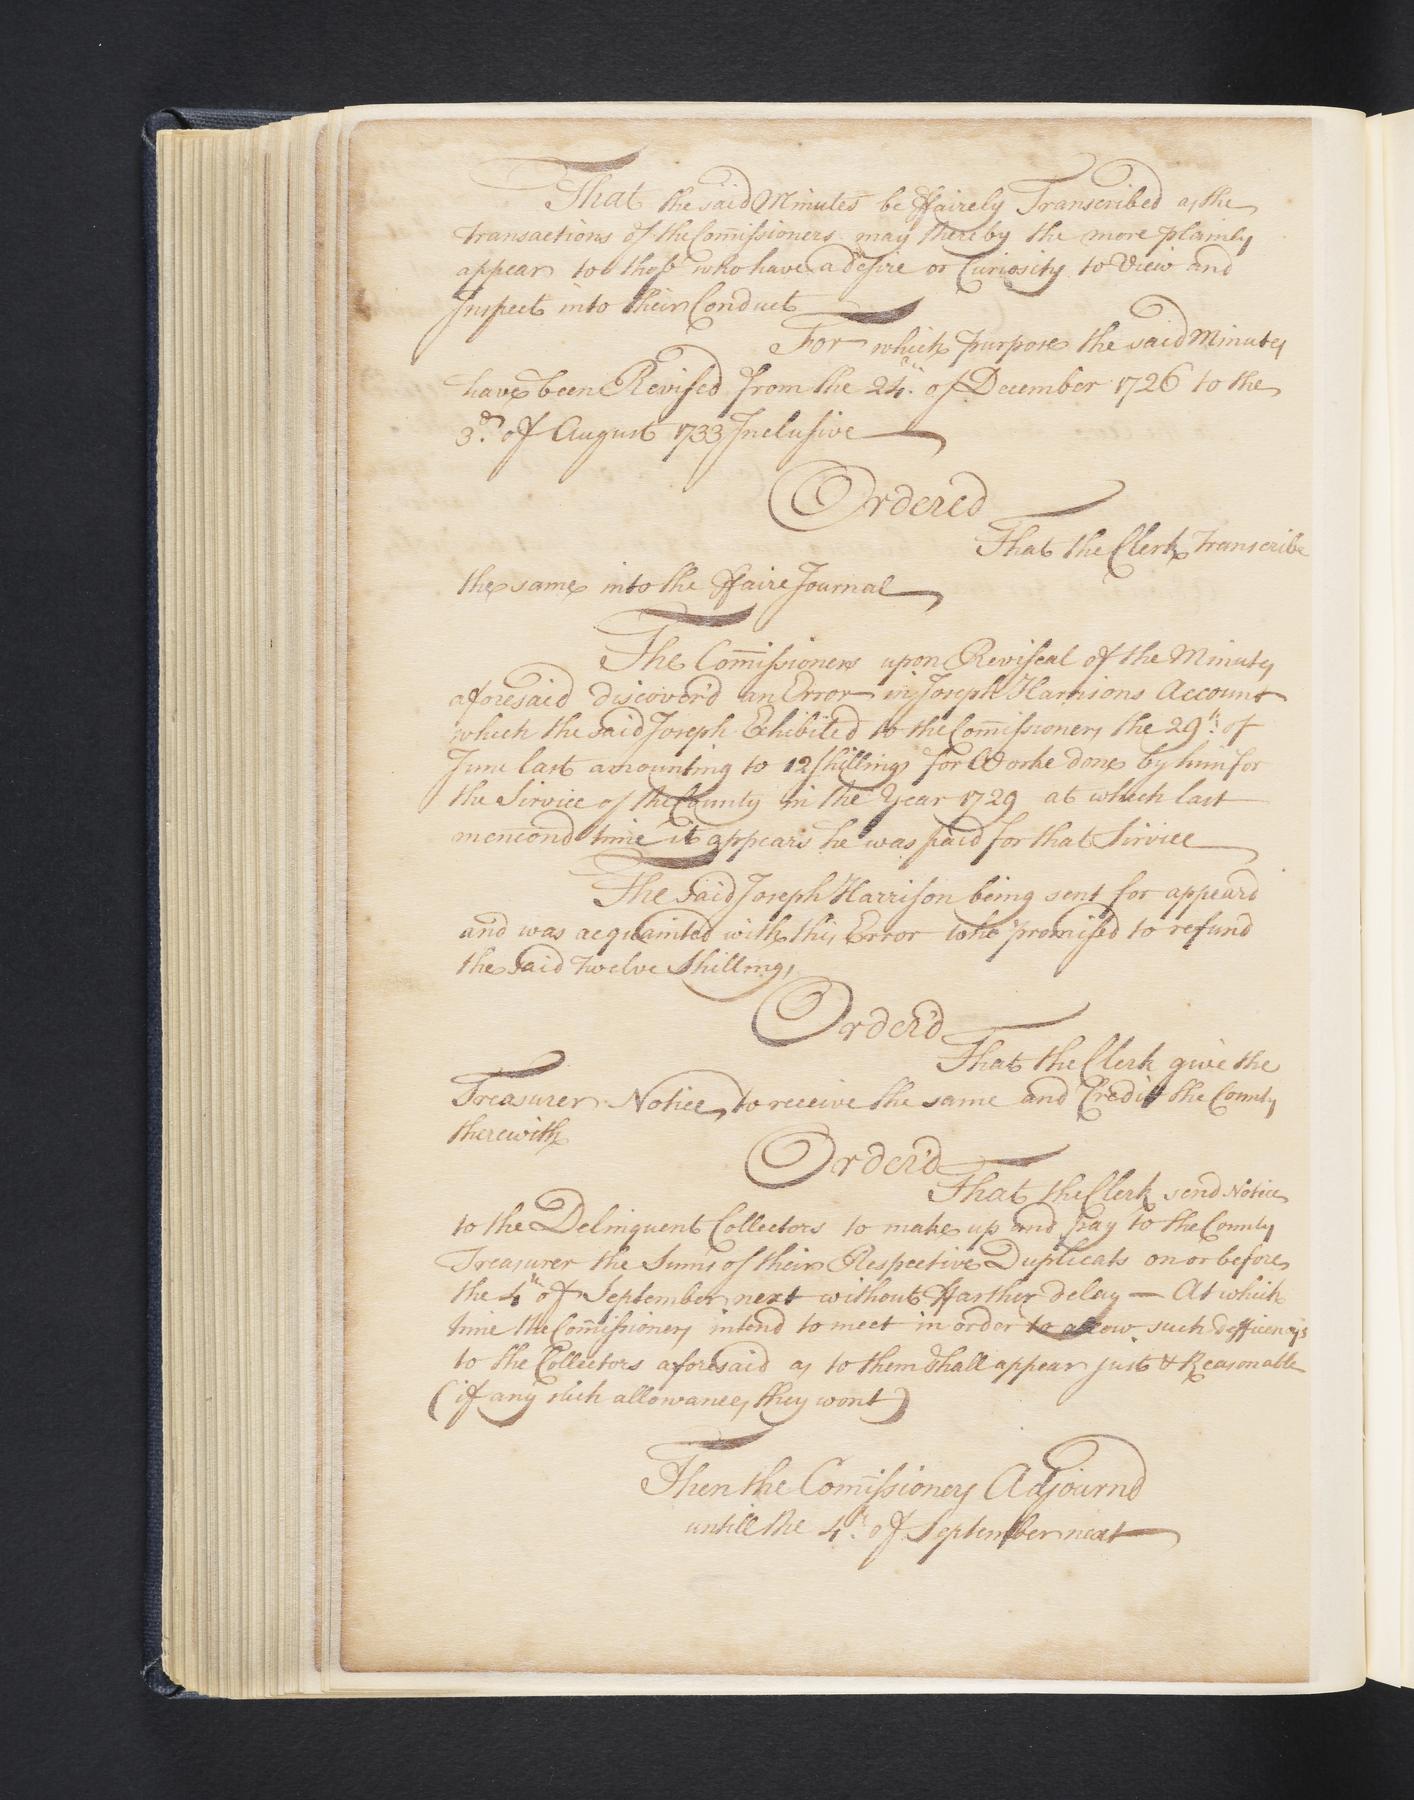 That the said Minutes be ffairely Transcribed as the
transactions of the Comissioners may thereby the more plainly
appear to those who have a desire or Curiosity to View and
Inspect into their Conduct
For which purpose the said Minutes
have been Revised from the 24th. of December 1726 to the
3d. of August 1733 Inclusive
Ordered
That the Clerk Transcribe
the same into the ffaire Journal
The Comissioners upon Reviseal of the Minutes
aforesaid discover'd an Error in Joseph Harrisons Account
which the said Joseph Exhibited to the Comissioners the 29th. of
June last amounting to 12 shillings for Worke done by him for
the Service of the County in the Year 1729 at which last
mencond time it appears he was paid for that Service
The said Joseph Harrison being sent for appeard
and was acquainted with this Error who promised to refund
the said Twelve shillings
Order'd
That the Clerk give the
Treasurer Notice to receive the same and Credit the County
therewith
Order'd
That the Clerk send Notice
to the Delinquent Collectors to make up and pay to the County
Treasurer the Sums of their Respective Duplicats on or before
the 4th of September next without ffarther delay — At which
time the Comissioners intend to meet in order to allow such defficencys
to the Collectors aforesaid as to them shall appear just & Reasonable
(if any such allowances they wont)
Then the Comissioners Adjournd
untill the 4th. of September next